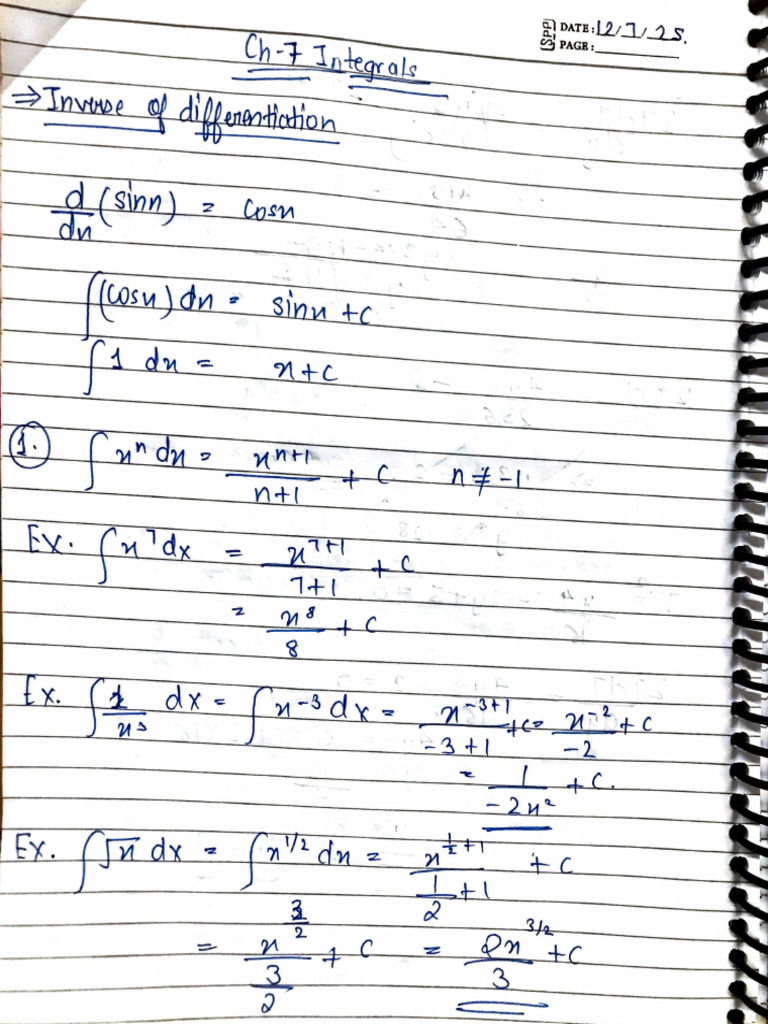 SPP DATE: 12/7/25.
PAGE:
Ch-7 Integrals
⇒ Inverse of differentiation
d/dx (sinx) = cosx
∫(cosx) dx = sinx + c
∫ 1 dx = x + c
1. ∫ xⁿ dx = xⁿ⁺¹/n+1 + c n ≠ -1
Ex. ∫ x⁷ dx = x⁷⁺¹/7+1 + c
= x⁸/8 + c
Ex. ∫ 1/x³ dx = ∫ x⁻³ dx = x⁻³⁺¹/-3+1 + c = x⁻²/-2 + c
= 1/-2x² + c.
Ex. ∫ √x dx = ∫ x^1/2 dx = x^(1/2+1)/(1/2+1) + c
= x^(3/2)/(3/2) + c = 2x^3/2/3 + c